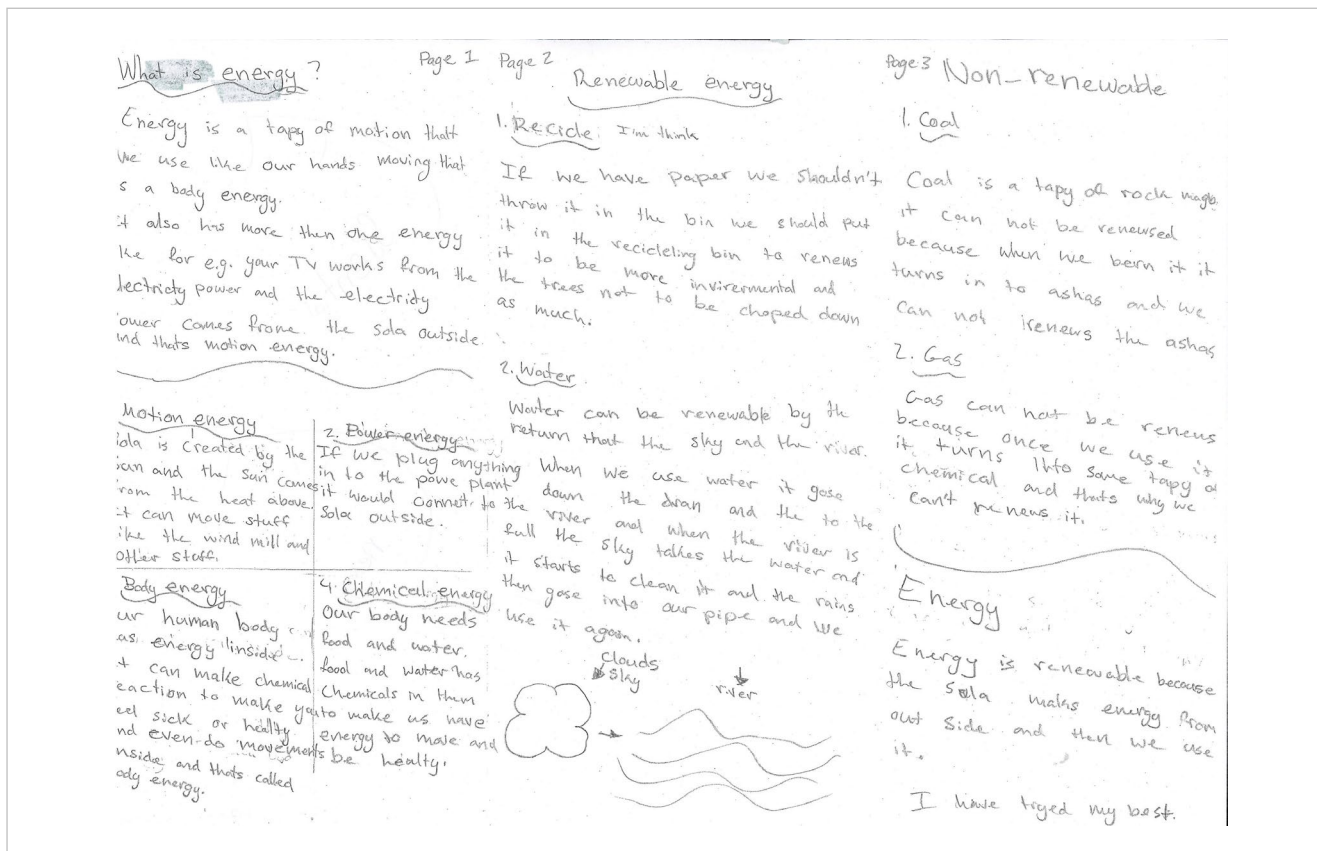 Page 1
What is energy?
Energy is a tapy of motion thatt
we use like our hands moving that
s a body energy.
it also has more then one energy
ke for e.g. your TV works from the
lectricty power and the electricity
ower comes frome the sola outside.
ind thats motion energy.
Motion energy
iola is created by the
sun and the sun comes
from the heat above.
it can move stuff
like the wind mill and
other stuff.
2. Power energy
If we plug anything
in to the powe plant
it would connect to the
Sola outside.
Body energy
ur human body
as energy inside.
t can make chemical
eaction to make you
eel sick or healty
nd even do movements
nside and thats called
ody energy.
4. Chemical energy
Our body needs
food and water.
food and water has
Chemicals in them
to make us have
energy to move and
be healty.
Page 2
Renewable energy
1. Recicle I'm think
If we have paper we shouldn't
throw it in the bin we should put
it in the recicleling bin to renews
it to be more invirermental and
the trees not to be choped down
as much.
2. Water
Water can be renewable by the
return that the sky and the river.
When we use water it gose
down the dran and the to the
river and when the river is
full the sky takes the water and
it starts to clean it and the rains
then gose into our pipe and we
use it again.
Clouds
Sky
river
Page 3
Non-renewable
1. Coal
Coal is a tapy of rock
it can not be renewsed
because when we bern it it
turns in to ashas and we
can not renews the ashas
2. Gas
Gas can not be renews
because once we use it
it turns into some tapy of
chemical and thats why we
can't renews it.
Energy
Energy is renewable because
the Sola makes energy from
out side and then we use
it.
I have tryed my best.